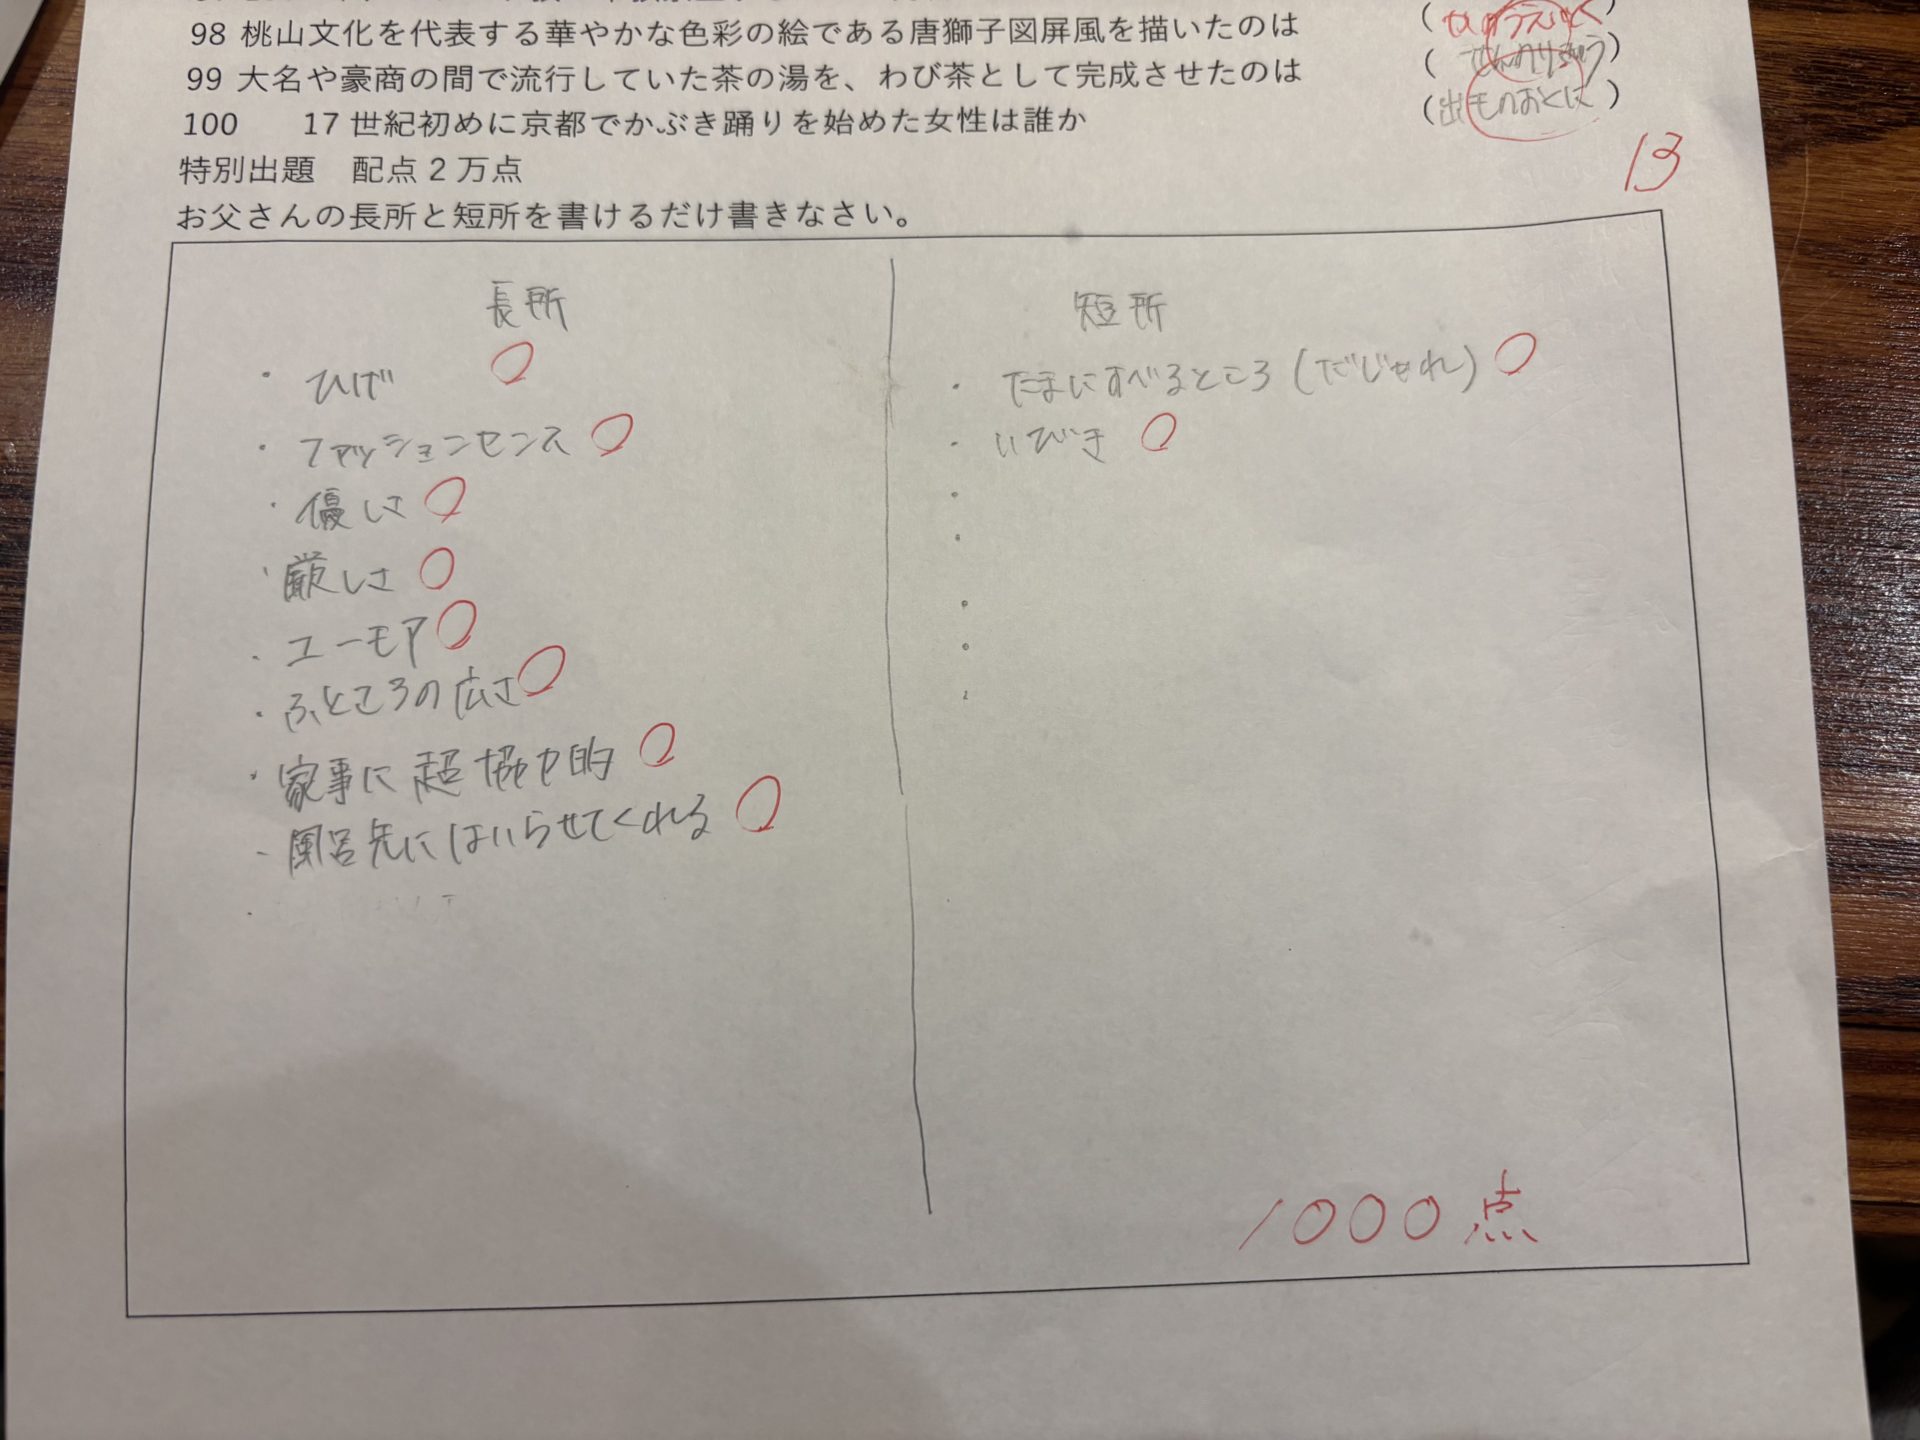 98 桃山文化を代表する華やかな色彩の絵である唐獅子図屏風を描いたのは
99 大名や豪商の間で流行していた茶の湯を、わび茶として完成させたのは (せんのりきゅう)
100 17世紀初めに京都でかぶき踊りを始めた女性は誰か (出雲のおくに)
13
特別出題 配点2万点
お父さんの長所と短所を書けるだけ書きなさい。
長所
・ひげ
・ファッションセンス
・優しさ
・厳しさ
・ユーモア
・ふところの広さ
・家事に超協力的
・風呂先にはいらせてくれる
短所
・たまにすべるところ(だじゃれ)
・いびき
1000点